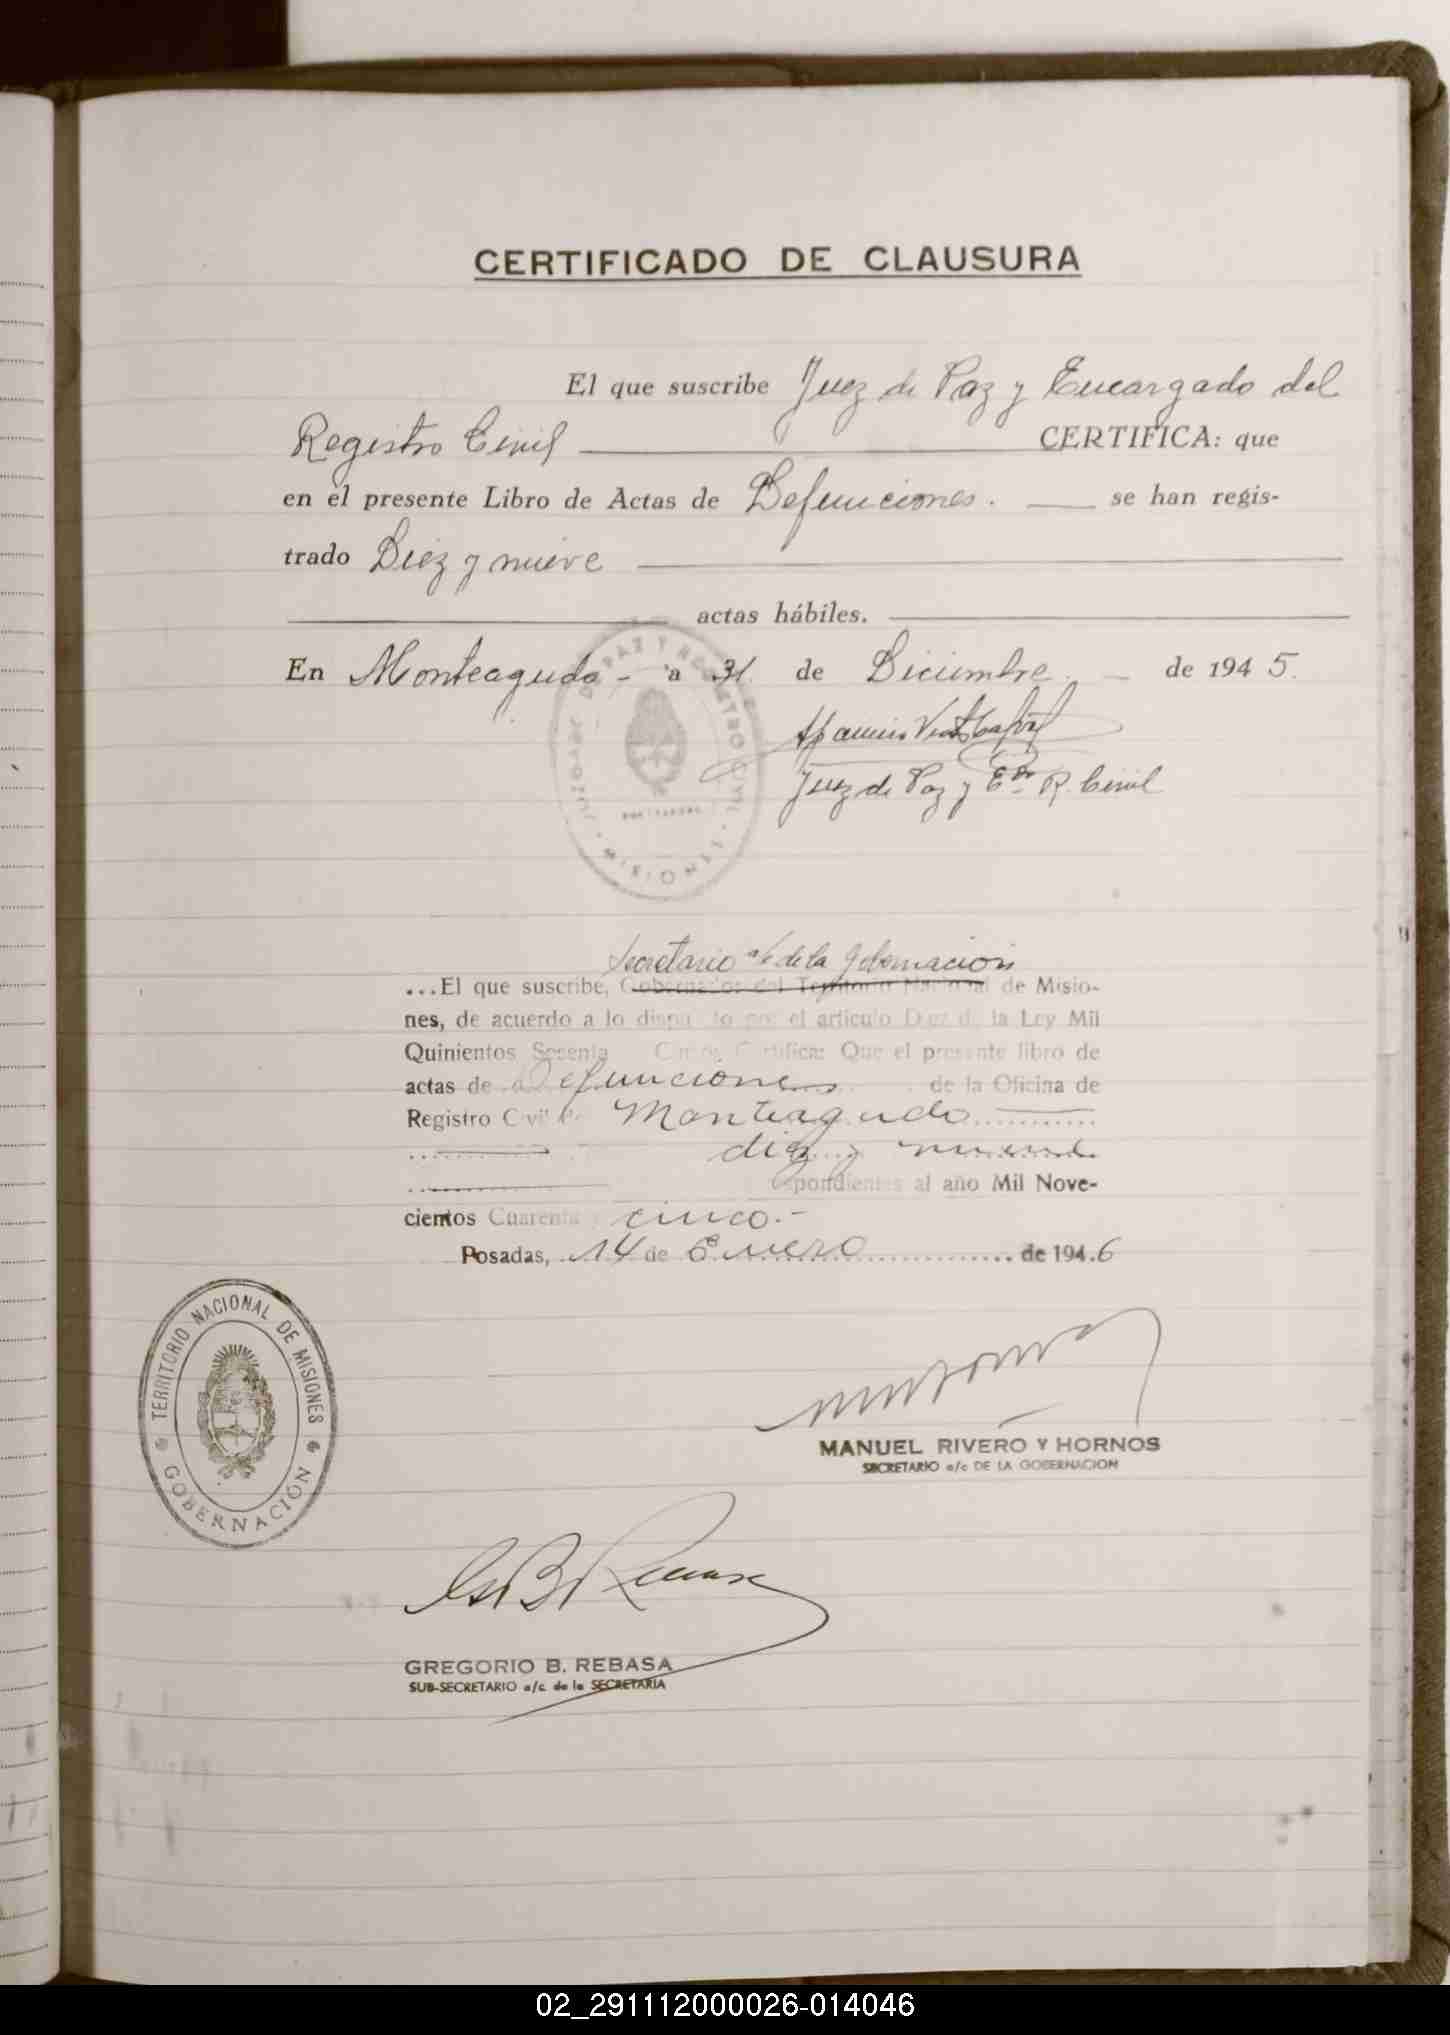 CERTIFICADO DE CLAUSURA
El que suscribe Juez de Paz y Encargado del
Registro Civil CERTIFICA: que
en el presente Libro de Actas de Defunciones. se han regis-
trado Diez y nueve
actas hábiles.
En Monteagudo - a 31 de Diciembre. - de 1945.
Juez de Paz y Edo R. Civil
MISIONES
Secretario a/c de la Gobernacion
...El que suscribe, Gobernador del Territorio Nacional de Misio-
nes, de acuerdo a lo dispuesto por el artículo Diez de la Ley Mil
Quinientos Sesenta y Cinco, Certifica: Que el presente libro de
actas de Defunciones de la Oficina de
Registro Civil de Monteagudo
diez y nueve
al año Mil Nove-
cientos Cuarenta y cinco.-
Posadas, 14 de Enero de 1946
TERRITORIO NACIONAL DE MISIONES
GOBERNACIÓN
MANUEL RIVERO Y HORNOS
SECRETARIO a/c DE LA GOBERNACION
GREGORIO B. REBASA
SUB-SECRETARIO a/c. de la SECRETARIA
02_291112000026-014046